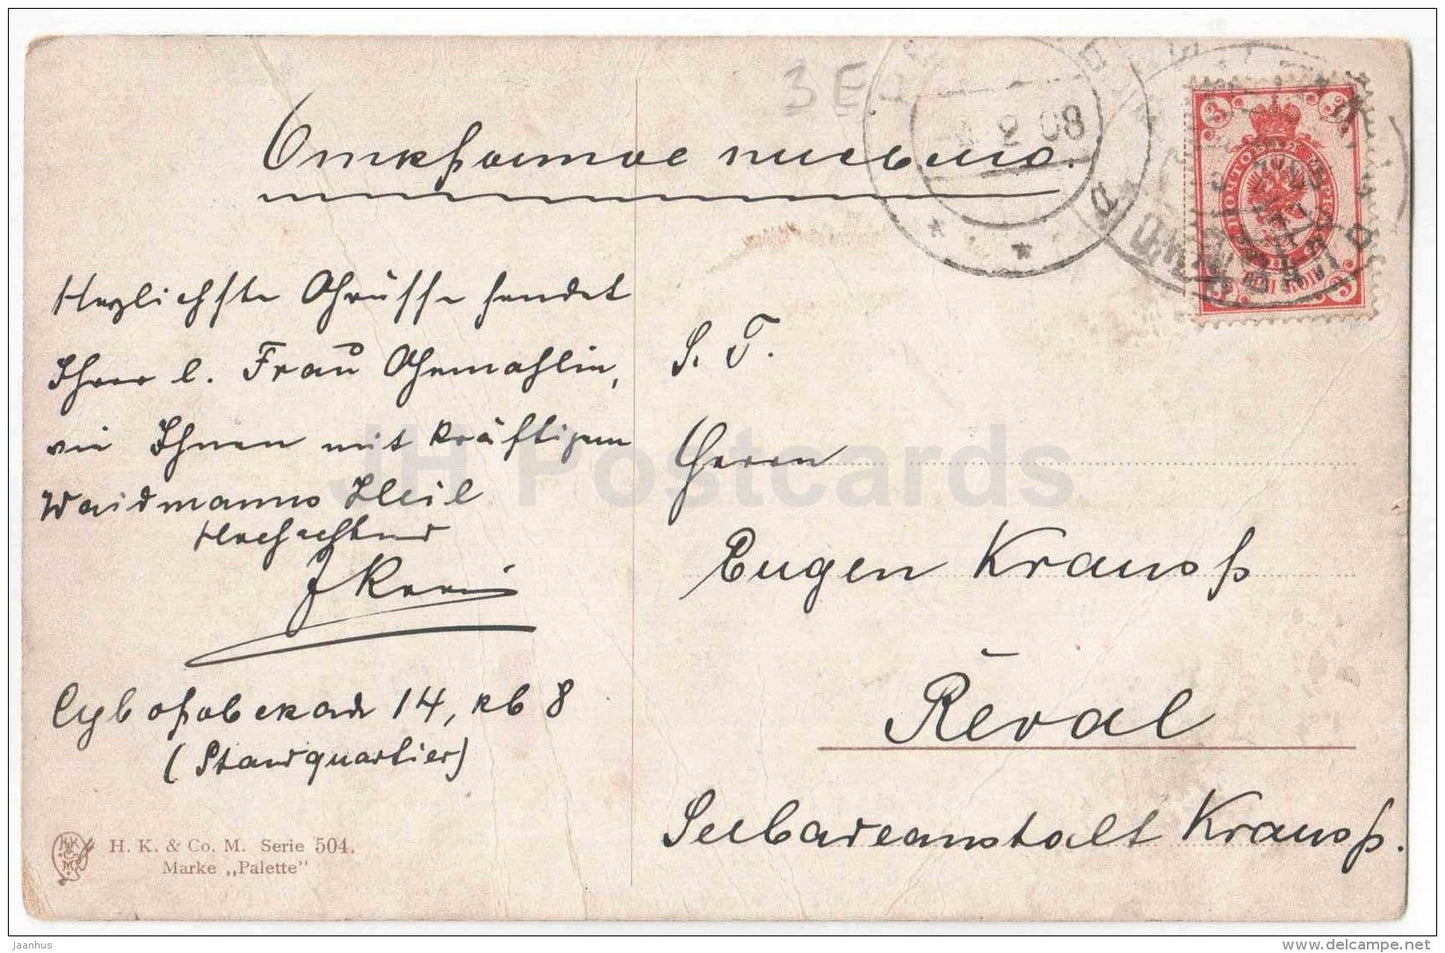 Открытое письмо.
3 E
2 08
Herzlichste Grüsse sendet
Ihrer l. Frau Gemahlin,
wie Ihnen mit kräftigem
Waidmanns Heil
Hochachtend
Суворовская 14, кв 8
(Standquartier)
S. T.
Herrn
Eugen Krauss
Reval
Seebadeanstalt Krauss.
H. K. & Co. M. Serie 504.
Marke „Palette"
JH Postcards
jaanhus
www.delcampe.net